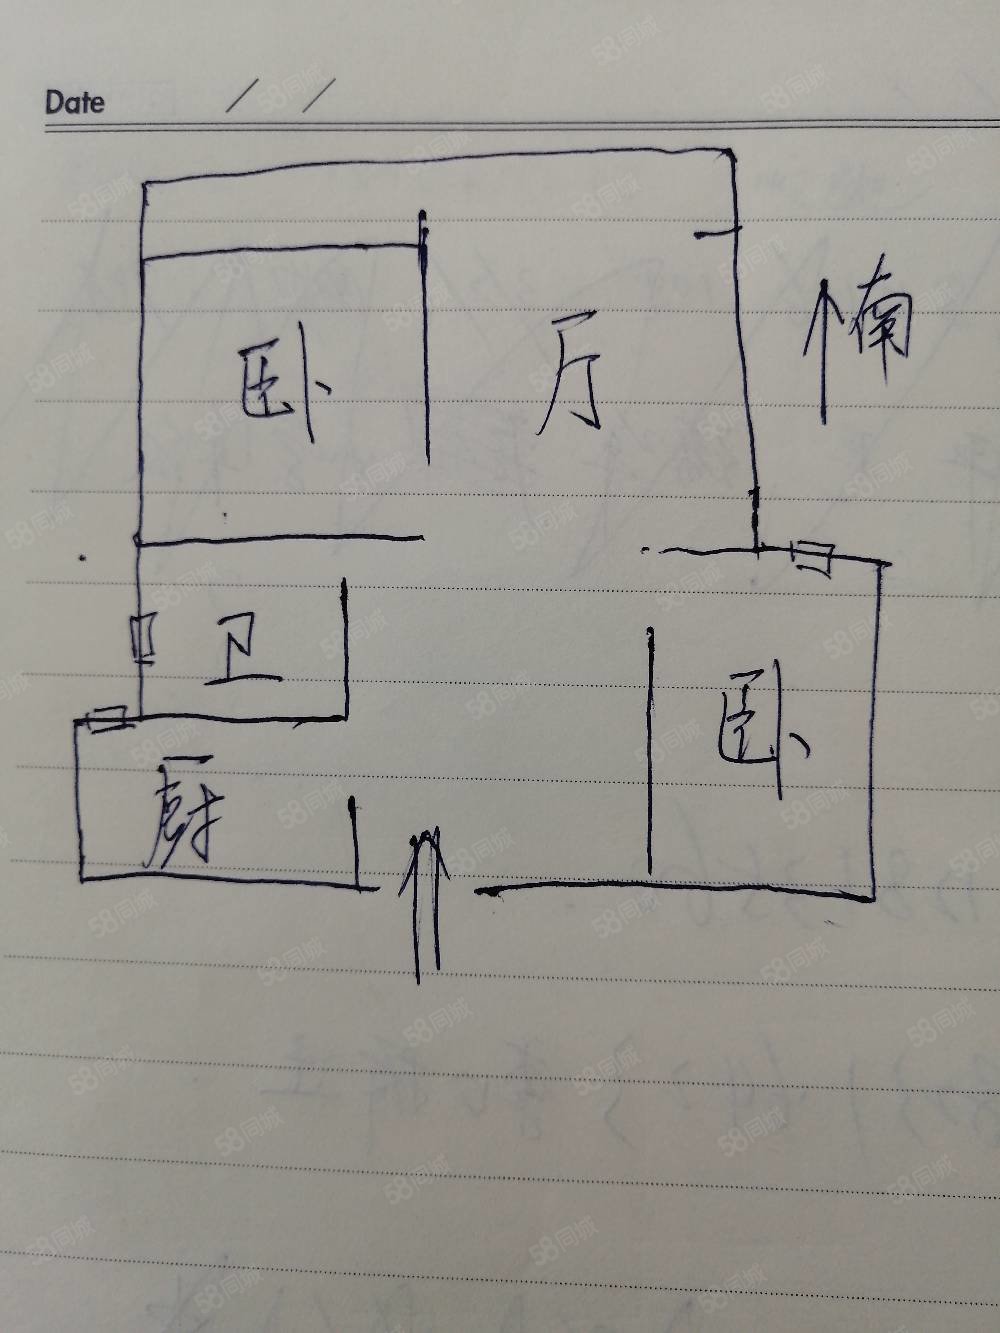 Date / /
卧 厅 南
卫
卧
厨
58同城